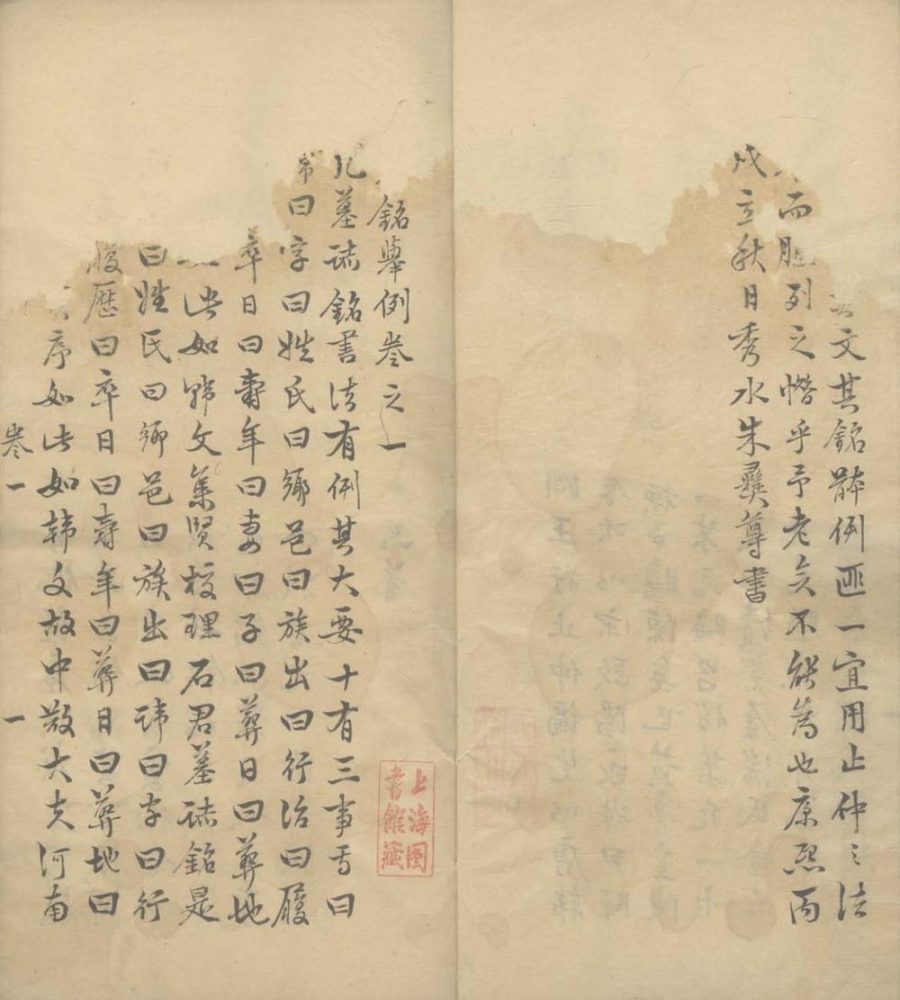 文其銘躰例匪一宜用止仲之法
而臚列之惜乎予老矣不能為也康熙丙
戌立秋日秀水朱彝尊書
上海图
書館藏
銘舉例卷之一
凡墓誌銘書法有例其大要十有三事焉曰
曰字曰姓氏曰鄉邑曰族出曰行治曰履
卒日曰壽年曰妻曰子曰葬日曰葬地
此如韓文集賢校理石君墓誌銘是
曰姓氏曰鄉邑曰族出曰諱曰字曰行
履歷曰卒日曰壽年曰葬日曰葬地曰
序如此如韓文故中散大夫河南
卷一 一